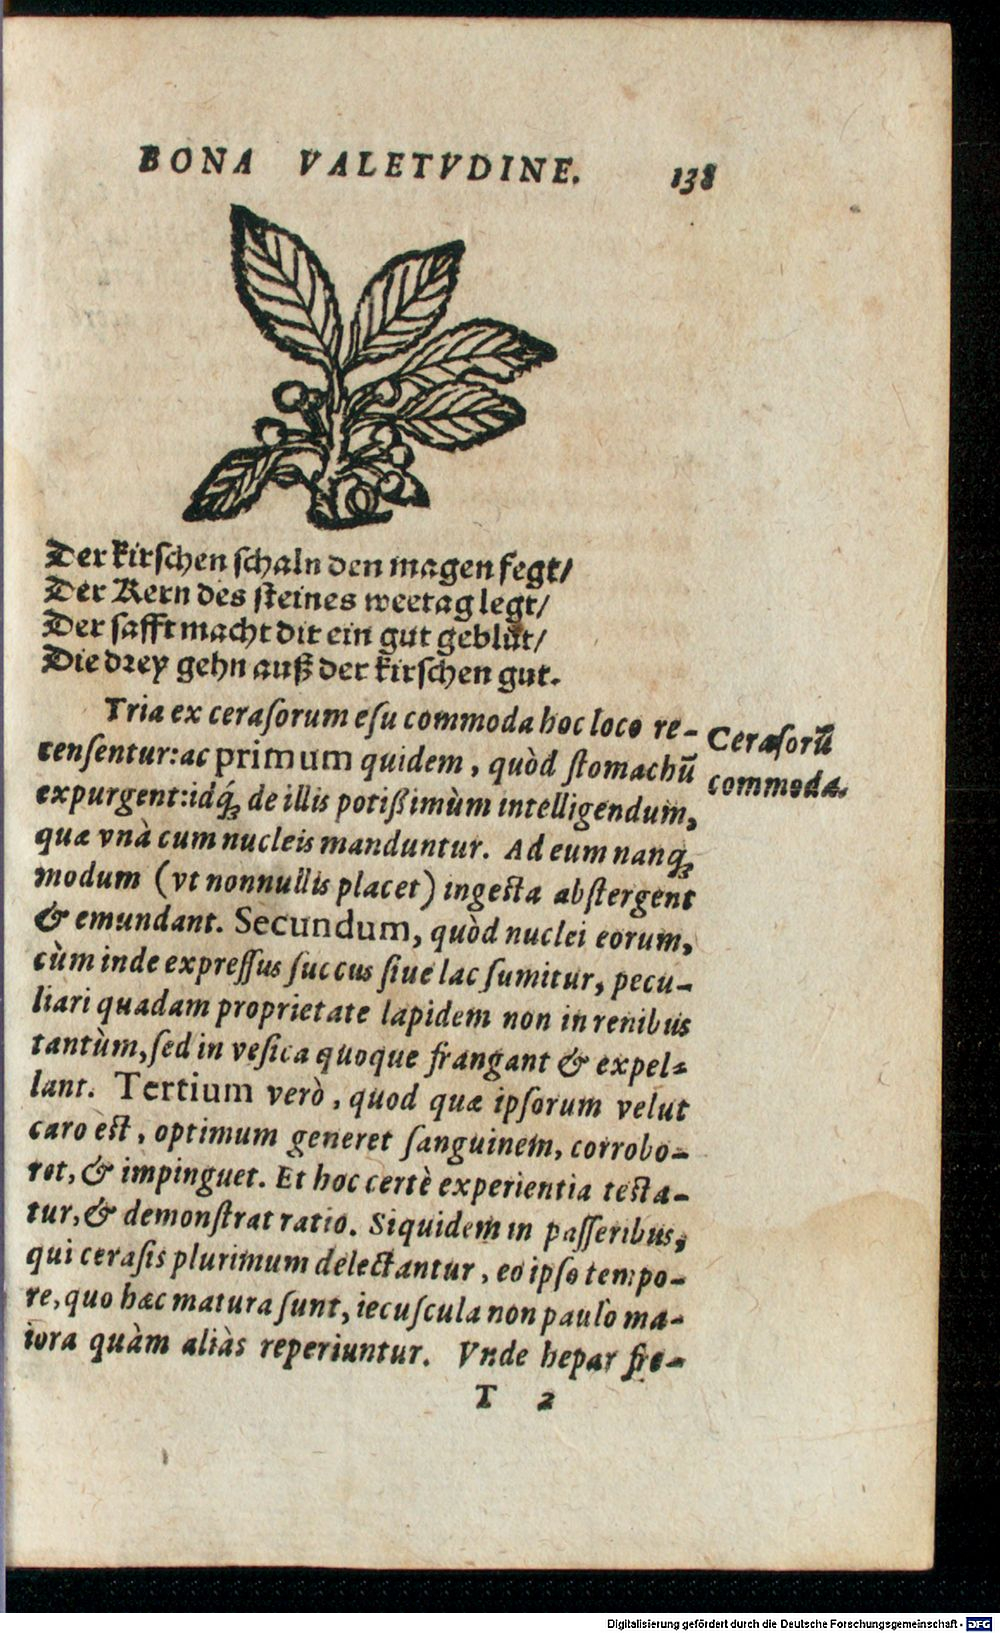 BONA VALETVDINE. 138
Der kirſchen ſchaln den magen fegt/
Der Kern des ſteines weetag legt/
Der ſafft macht dir ein gut geblüt/
Die drey gehn auß der kirſchen gut.
Tria ex ceraſorum eſu commoda hoc loco re-
cenſentur: ac primum quidem, quòd ſtomachũ
expurgent: idq́; de illis potißimùm intelligendum,
quæ vnà cum nucleis manduntur. Ad eum nanq́;
modum (vt nonnullis placet) ingeſta abſtergent
& emundant. Secundum, quòd nuclei eorum,
cùm inde expreſſus ſuccus ſiue lac ſumitur, pecu-
liari quadam proprietate lapidem non in renibus
tantùm, ſed in veſica quoque frangant & expel-
lant. Tertium verò, quod quæ ipſorum velut
caro eſt, optimum generet ſanguinem, corrobo-
ret, & impinguet. Et hoc certè experientia teſta-
tur, & demonſtrat ratio. Siquidem in paſſeribus,
qui ceraſis plurimum delectantur, eo ipſo tempo-
re, quo hæc matura ſunt, iecuſcula non paulò ma-
iora quàm aliàs reperiuntur. Vnde hepar fre-
T 2
Ceraſorũ
commoda.
Digitalisierung gefördert durch die Deutsche Forschungsgemeinschaft - DFG